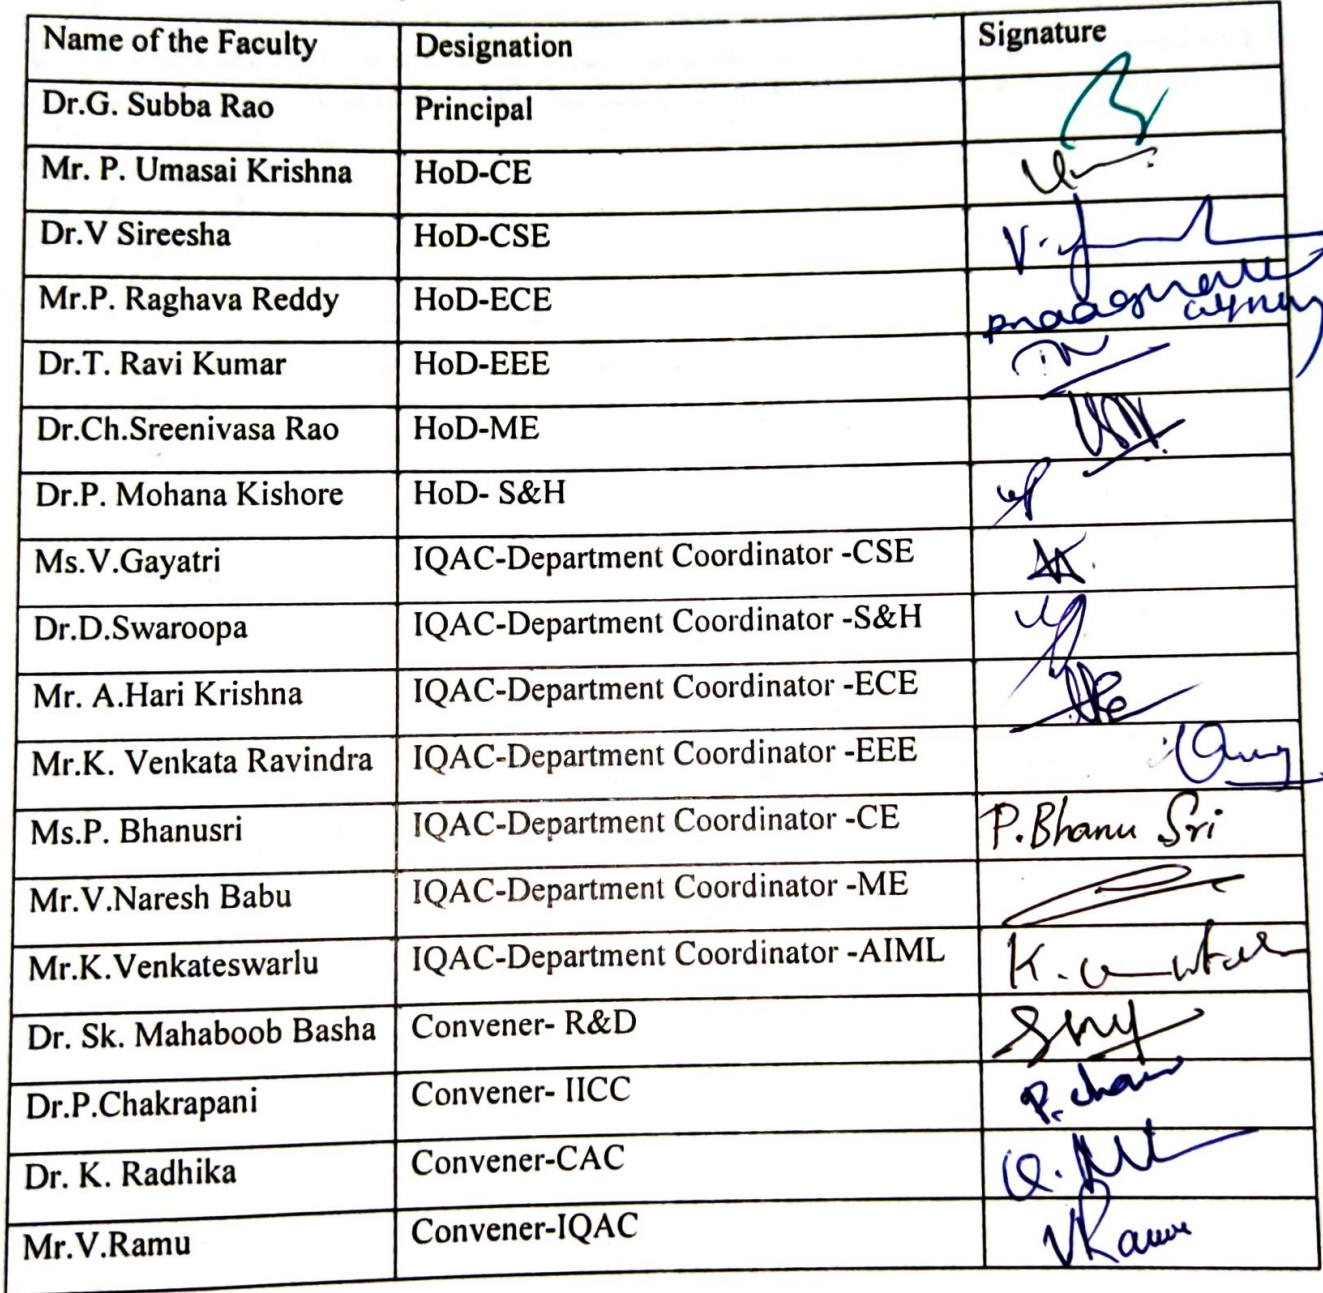 Name of the Faculty Designation Signature
Dr.G. Subba Rao Principal
Mr. P. Umasai Krishna HoD-CE
Dr.V Sireesha HoD-CSE
Mr.P. Raghava Reddy HoD-ECE
Dr.T. Ravi Kumar HoD-EEE
Dr.Ch.Sreenivasa Rao HoD-ME
Dr.P. Mohana Kishore HoD- S&H
Ms.V.Gayatri IQAC-Department Coordinator -CSE
Dr.D.Swaroopa IQAC-Department Coordinator -S&H
Mr. A.Hari Krishna IQAC-Department Coordinator -ECE
Mr.K. Venkata Ravindra IQAC-Department Coordinator -EEE
Ms.P. Bhanusri IQAC-Department Coordinator -CE P.Bhanu Sri
Mr.V.Naresh Babu IQAC-Department Coordinator -ME
Mr.K.Venkateswarlu IQAC-Department Coordinator -AIML
Dr. Sk. Mahaboob Basha Convener- R&D
Dr.P.Chakrapani Convener- IICC
Dr. K. Radhika Convener-CAC
Mr.V.Ramu Convener-IQAC